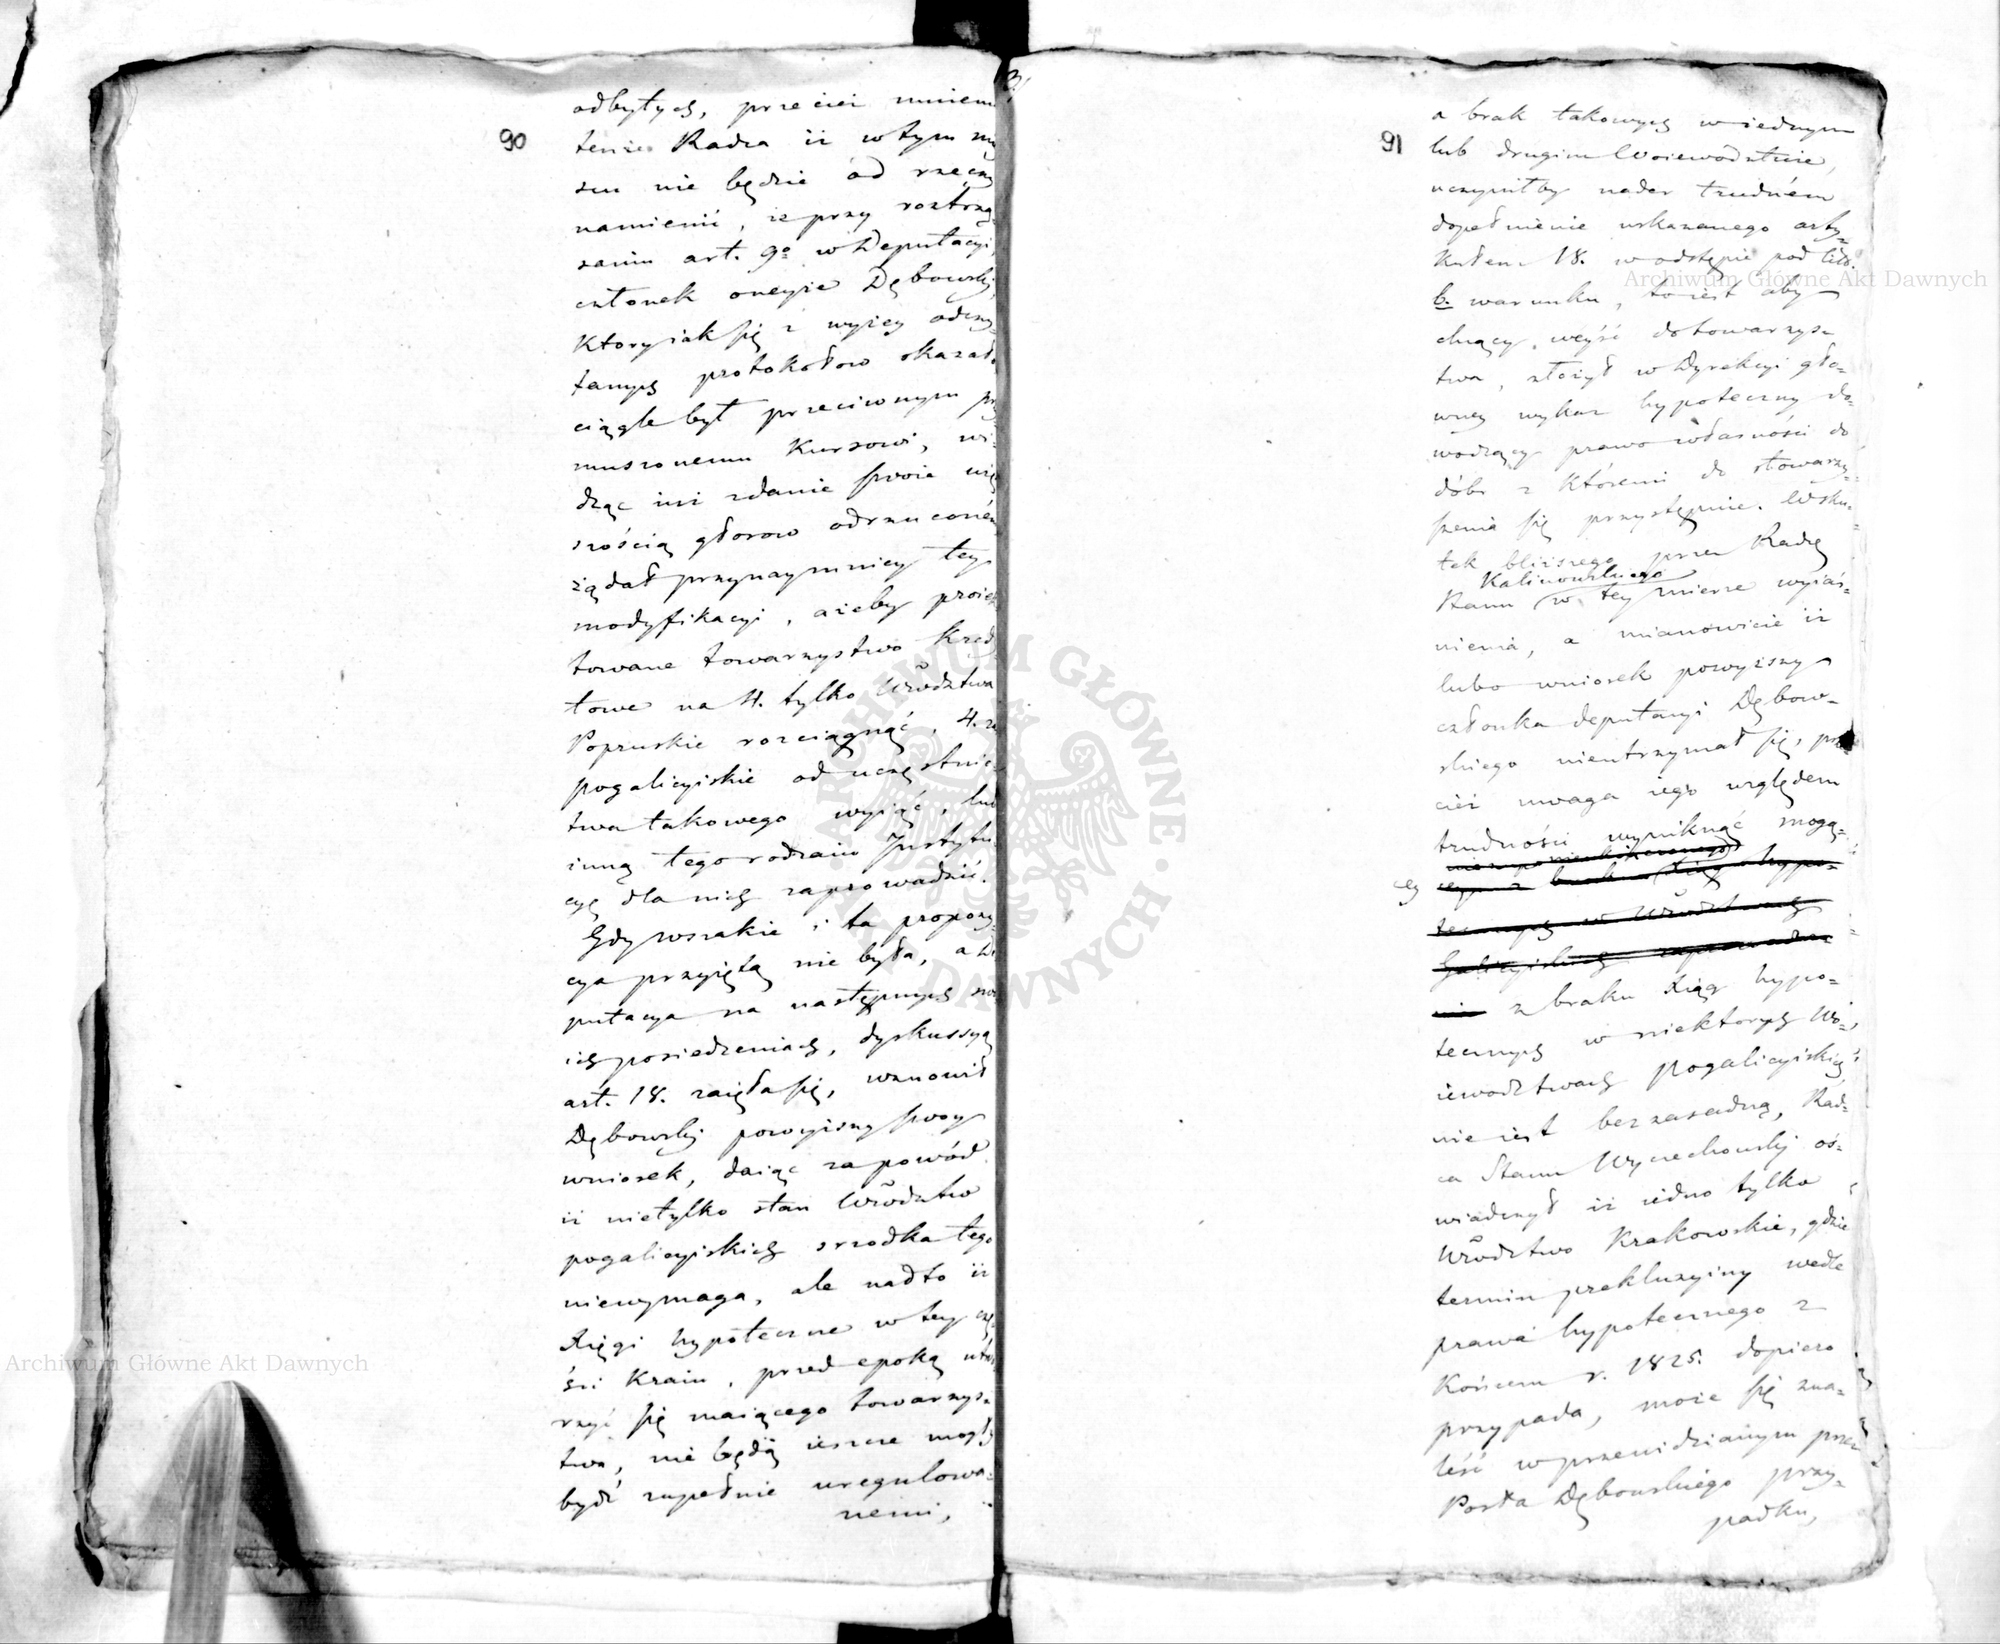 90
odbytych, przecież mniem
tenże Radca iż w tym my
scu nie będzie od rzeczy
namienić, że przy roztrzą=
saniu art. 9º w Deputacyi,
członek oneyże Dębowski,
Ktory iak się z wyżey odczy=
tanych protokołow okazało
ciągle był przeciwnym przy
muszonemu Kursowi, wi=
dząc iuż zdanie swoie więk
szością głosow odrzuconém
żądał przynaymniey tey
modyfikacyi, ażeby proiek
towane towarzystwo Kredy
towe na 4. tylko Wdztwa
Popruskie rozciągnąć, 4. zaś
pogalicyiskie od uczęstnic=
twa takowego wyiąć, lub
inną tego rodzaiu Instytu=
cyę dla nich zaprowadzić.
Gdy wszakże i ta propozy=
cya przyiętą nie była, a De
putacya na następnych swo
ich posiedzeniach, dyskussyą
art. 18. zaięła się, wznowił
Dębowski powyższy swoy
wniosek, daiąc za powód
iż nietylko stan Wdztw
pogalicyiskich srzodka tego
niewymaga, ale nadto iż
Xięgi hypoteczne w tey czę=
ści Kraiu, przed epoką utwo
rzyć się maiącego towarzys=
twa, nie będą ieszcze mogły
bydź zupełnie uregulowa=
nemi,
91
a brak takowych w iednym
lub drugim Woiewodztwie,
uczyniłby nader trudném
dopełnienie wskazanego arty=
Kułem 18. w odstępie pod lit.
b. warunku, to iest aby
chcący weyść do towarzys=
twa, złożył w Dyrekcyi głó=
wney wykaz hypoteczny do=
wodzący prawo własności do
dóbr z Któremi do stowarzy=
szenia się przystępuie. Wsku=
tek bliższego przez Radcę
Kalinowskiego
Stanu w tey mierze wyiaś=
nienia, a mianowicie iż
lubo wniosek powyższy
członka deputacyi Dębow=
skiego nieutrzymał się, prze=
cież uwaga iego względem
trudności wyniknąć mogą=
cey
z brak Xiąg hypo=
tecznych w Wdztwach
Galicyiskich zaprowadze=
nia z braku Xiąg hypo=
tecznych w niektorych Wo=
iewodztwach Pogalicyiskich
nie iest bezzasadną, Rad=
ca Stanu Wyczechowski oś=
wiadczył iż iedno tylko
Wdztwo Krakowskie, gdzie
termin prekluzyiny wedle
prawa hypotecznego z
Końcem r. 1825. dopiero
przypada, może się zna=
leść w przewidzianym przez
Posła Dębowskiego przy=
padku,
Archiwum Główne Akt Dawnych
Archiwum Główne Akt Dawnych
ARCHIWUM GŁÓWNE AKT DAWNYCH